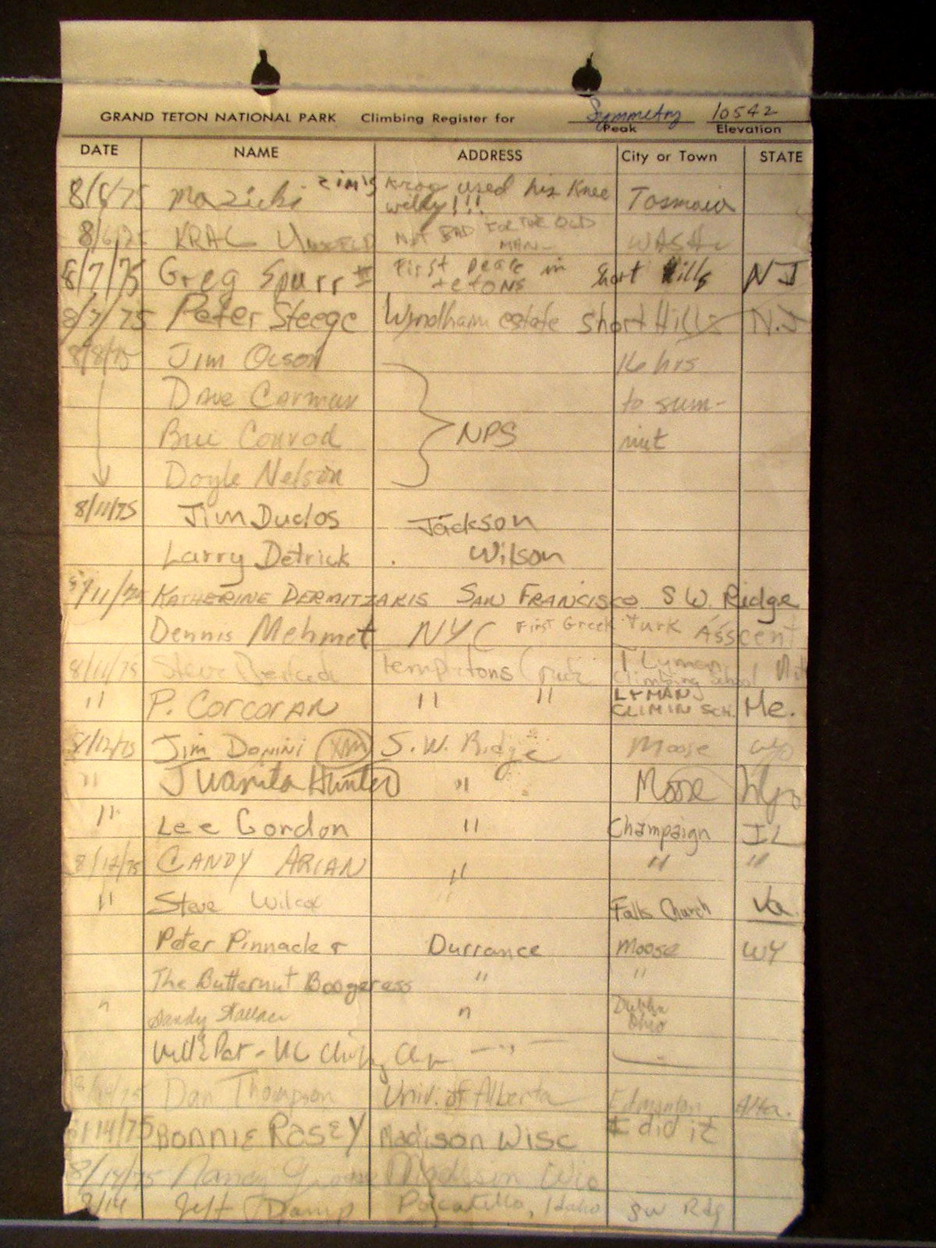 Symmetry 10542
GRAND TETON NATIONAL PARK Climbing Register for Peak Elevation
DATE NAME ADDRESS City or Town STATE
8/6/75 Mazicki Krag used his Knee
wildly!!! Tasmania
8/6/75 KRAG NOT BAD FOR THE OLD
MAN- WASH.
8/7/75 Greg Spurr II First peak in Short Hills NJ
tetons
8/7/75 Peter Steege Wyndham estate Short Hills N.J
8/8/75 Jim Olson 16 hrs
Dave Carman to sum-
Bill Conrod NPS mit
Doyle Nelson
8/11/75 Jim Duclos Jackson
Larry Detrick Wilson
8/11/75 KATHERINE DERMITZAKIS SAN FRANCISCO S.W. Ridge
Dennis Mehmet NYC First Greek Turk Asscent
8/11/75 Steve Templetons Crack T Lyman
Climbing School
" P. CORCORAN " " LYMANS
CLIMIN SCH. Me.
8/12/75 Jim Donini S.W. Ridge Moose Wyo
" Juanita Hunter " Moose Wyo
" Lee Gordon " Champaign IL
8/12/75 CANDY ARIAN " " "
" Steve Wilcox " Falls Church Va.
Peter Pinnacle & Durrance Moose WY
The Butternut Boogeress " "
" Sandy " Dublin
Ohio
Dan Thompson Univ. of Alberta Edmonton Alta.
8/14/75 BONNIE RASEY Madison Wisc I did it
8/14/75 Nancy Madison Wis
8/14 Jeff Pocatello, Idaho SW Rdg